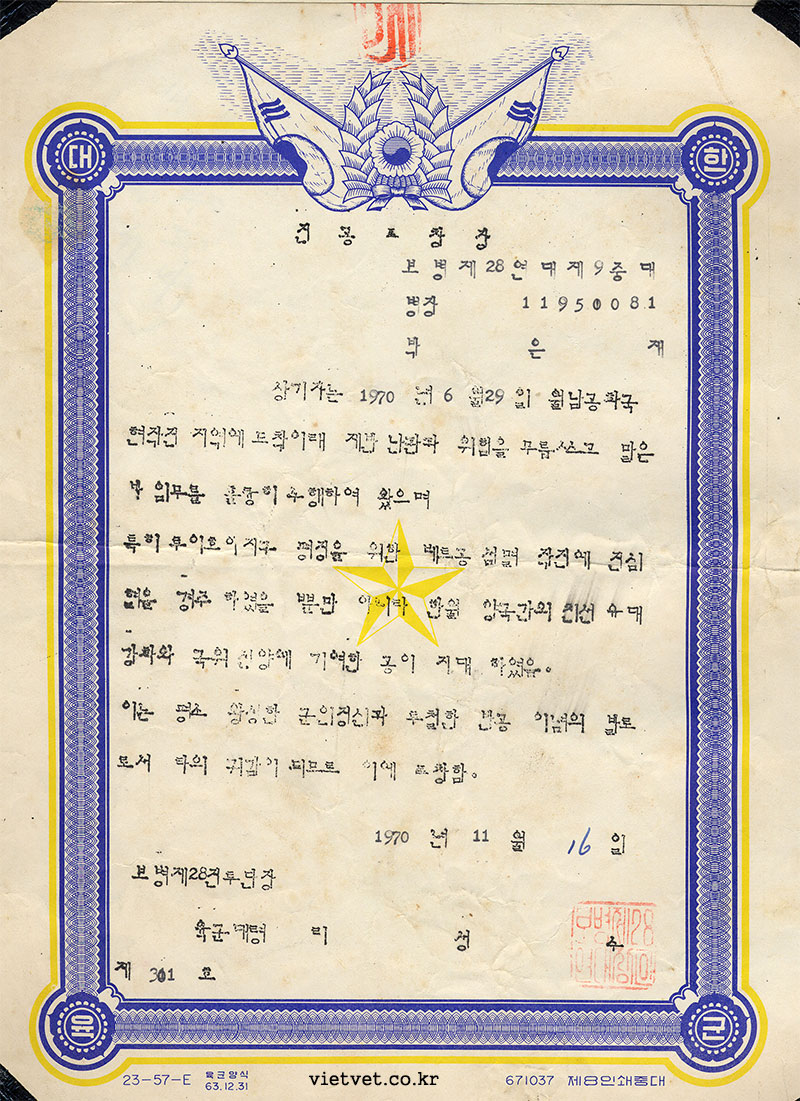 대 한
전 공 표 창 장
보 병 제 28 연 대 제 9 중 대
병장 11950081
박 은 재
상기자는 1970 년 6 월 29 일 월남공화국
현작전 지역에 도착이래 제반 난관과 위험을 무릅쓰고 맡은
바 임무를 훌륭히 수행하여 왔으며
특히 투이호아지구 평정을 위한 베트콩 섬멸 작전에 전심
력을 경주 하였을 뿐만 아니라 한월 양국간의 친선 유대
강화와 국위 선양에 기여한 공이 지대 하였음.
이는 평소 왕성한 군인정신과 투철한 반공 이념의 발로
로서 타의 귀감이 되므로 이에 표창함.
1970 년 11 월 16 일
보병제28전투단장
육군대령 이 성 수
제 301 호
육 군
23-57-E 육군양식 63.12.31
vietvet.co.kr
671037 제8인쇄중대